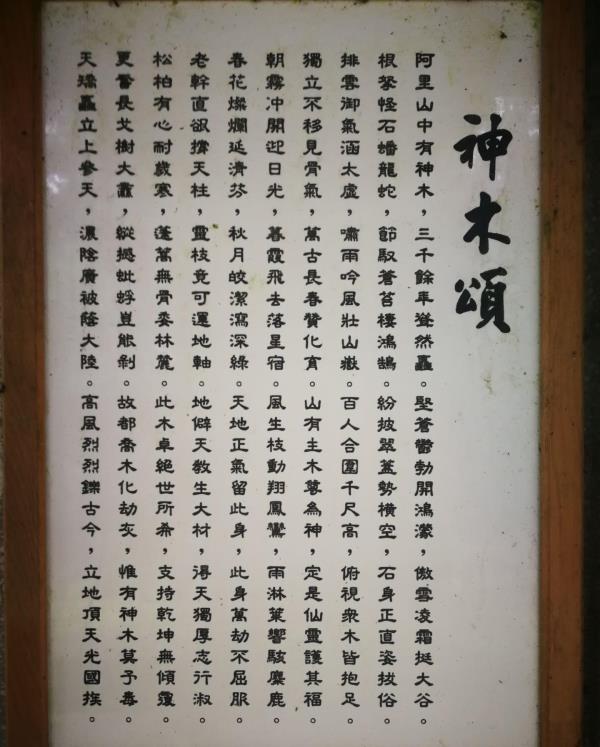 神木頌
阿里山中有神木，三千餘年聳然矗。堅蒼鬱勃開鴻濛，傲雲凌霜挺大谷。
根拏怪石蟠龍蛇，節馭蒼苔棲鴻鵠。紛披翠蓋勢橫空，石身正直姿拔俗。
排雲御氣涵太虛，嘯雨吟風壯山嶽。百人合圍千尺高，俯視衆木皆抱足。
獨立不移見骨氣，萬古長春贊化育。山有主木尊為神，定是仙靈護其福。
朝霧冲開迎日光，暮霞飛去落星宿。風生枝動翔鳳鸞，雨淋葉響駭麋鹿。
春花燦爛延清芬，秋月皎潔瀉深綠。天地正氣留此身，此身萬劫不屈服。
老幹直欲撐天柱，靈枝竟可運地軸。地僻天教生大材，得天獨厚志行淑。
松柏有心耐歲寒，蓬蒿無骨委林麓。此木卓絕世所希，支持乾坤無傾覆。
更嘗長戈樹大纛，縱撼蚍蜉豈能剝。故都喬木化劫灰，惟有神木莫予毒。
天矯矗立上參天，濃陰廣被蔭大陸。高風烈烈鑠古今，立地頂天光國族。